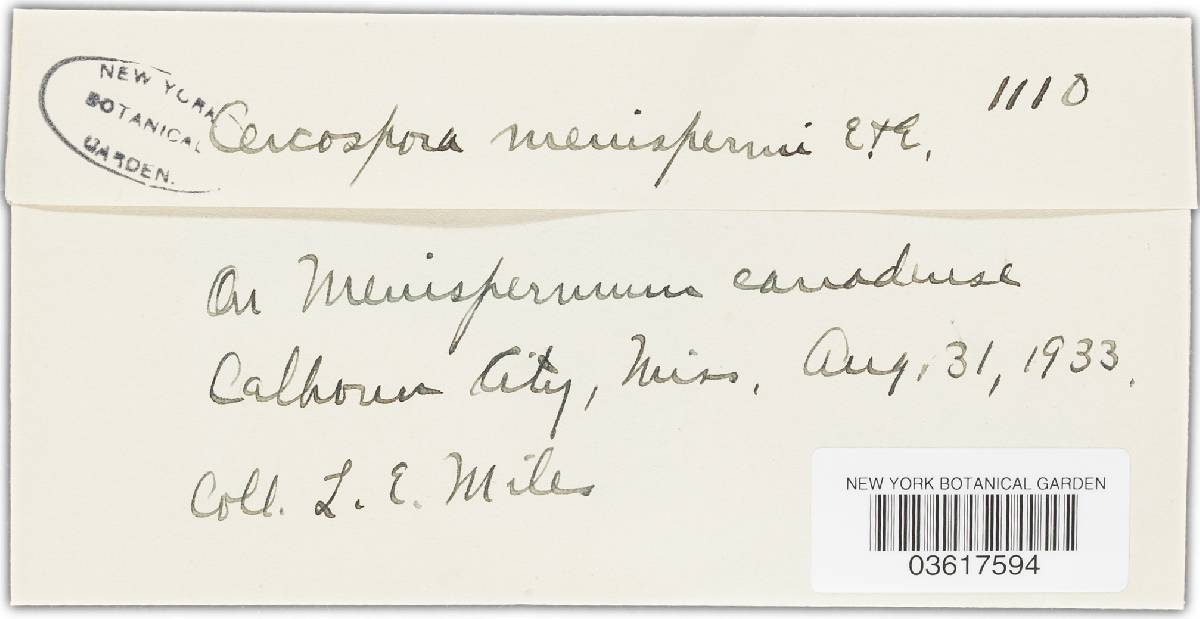 NEW YORK
BOTANICAL
GARDEN.
1110
Cercospora menispermi E.&E.
On Menispermum canadense
Calhoun City, Miss. Aug. 31, 1933.
Coll. L. E. Miles
NEW YORK BOTANICAL GARDEN
03617594